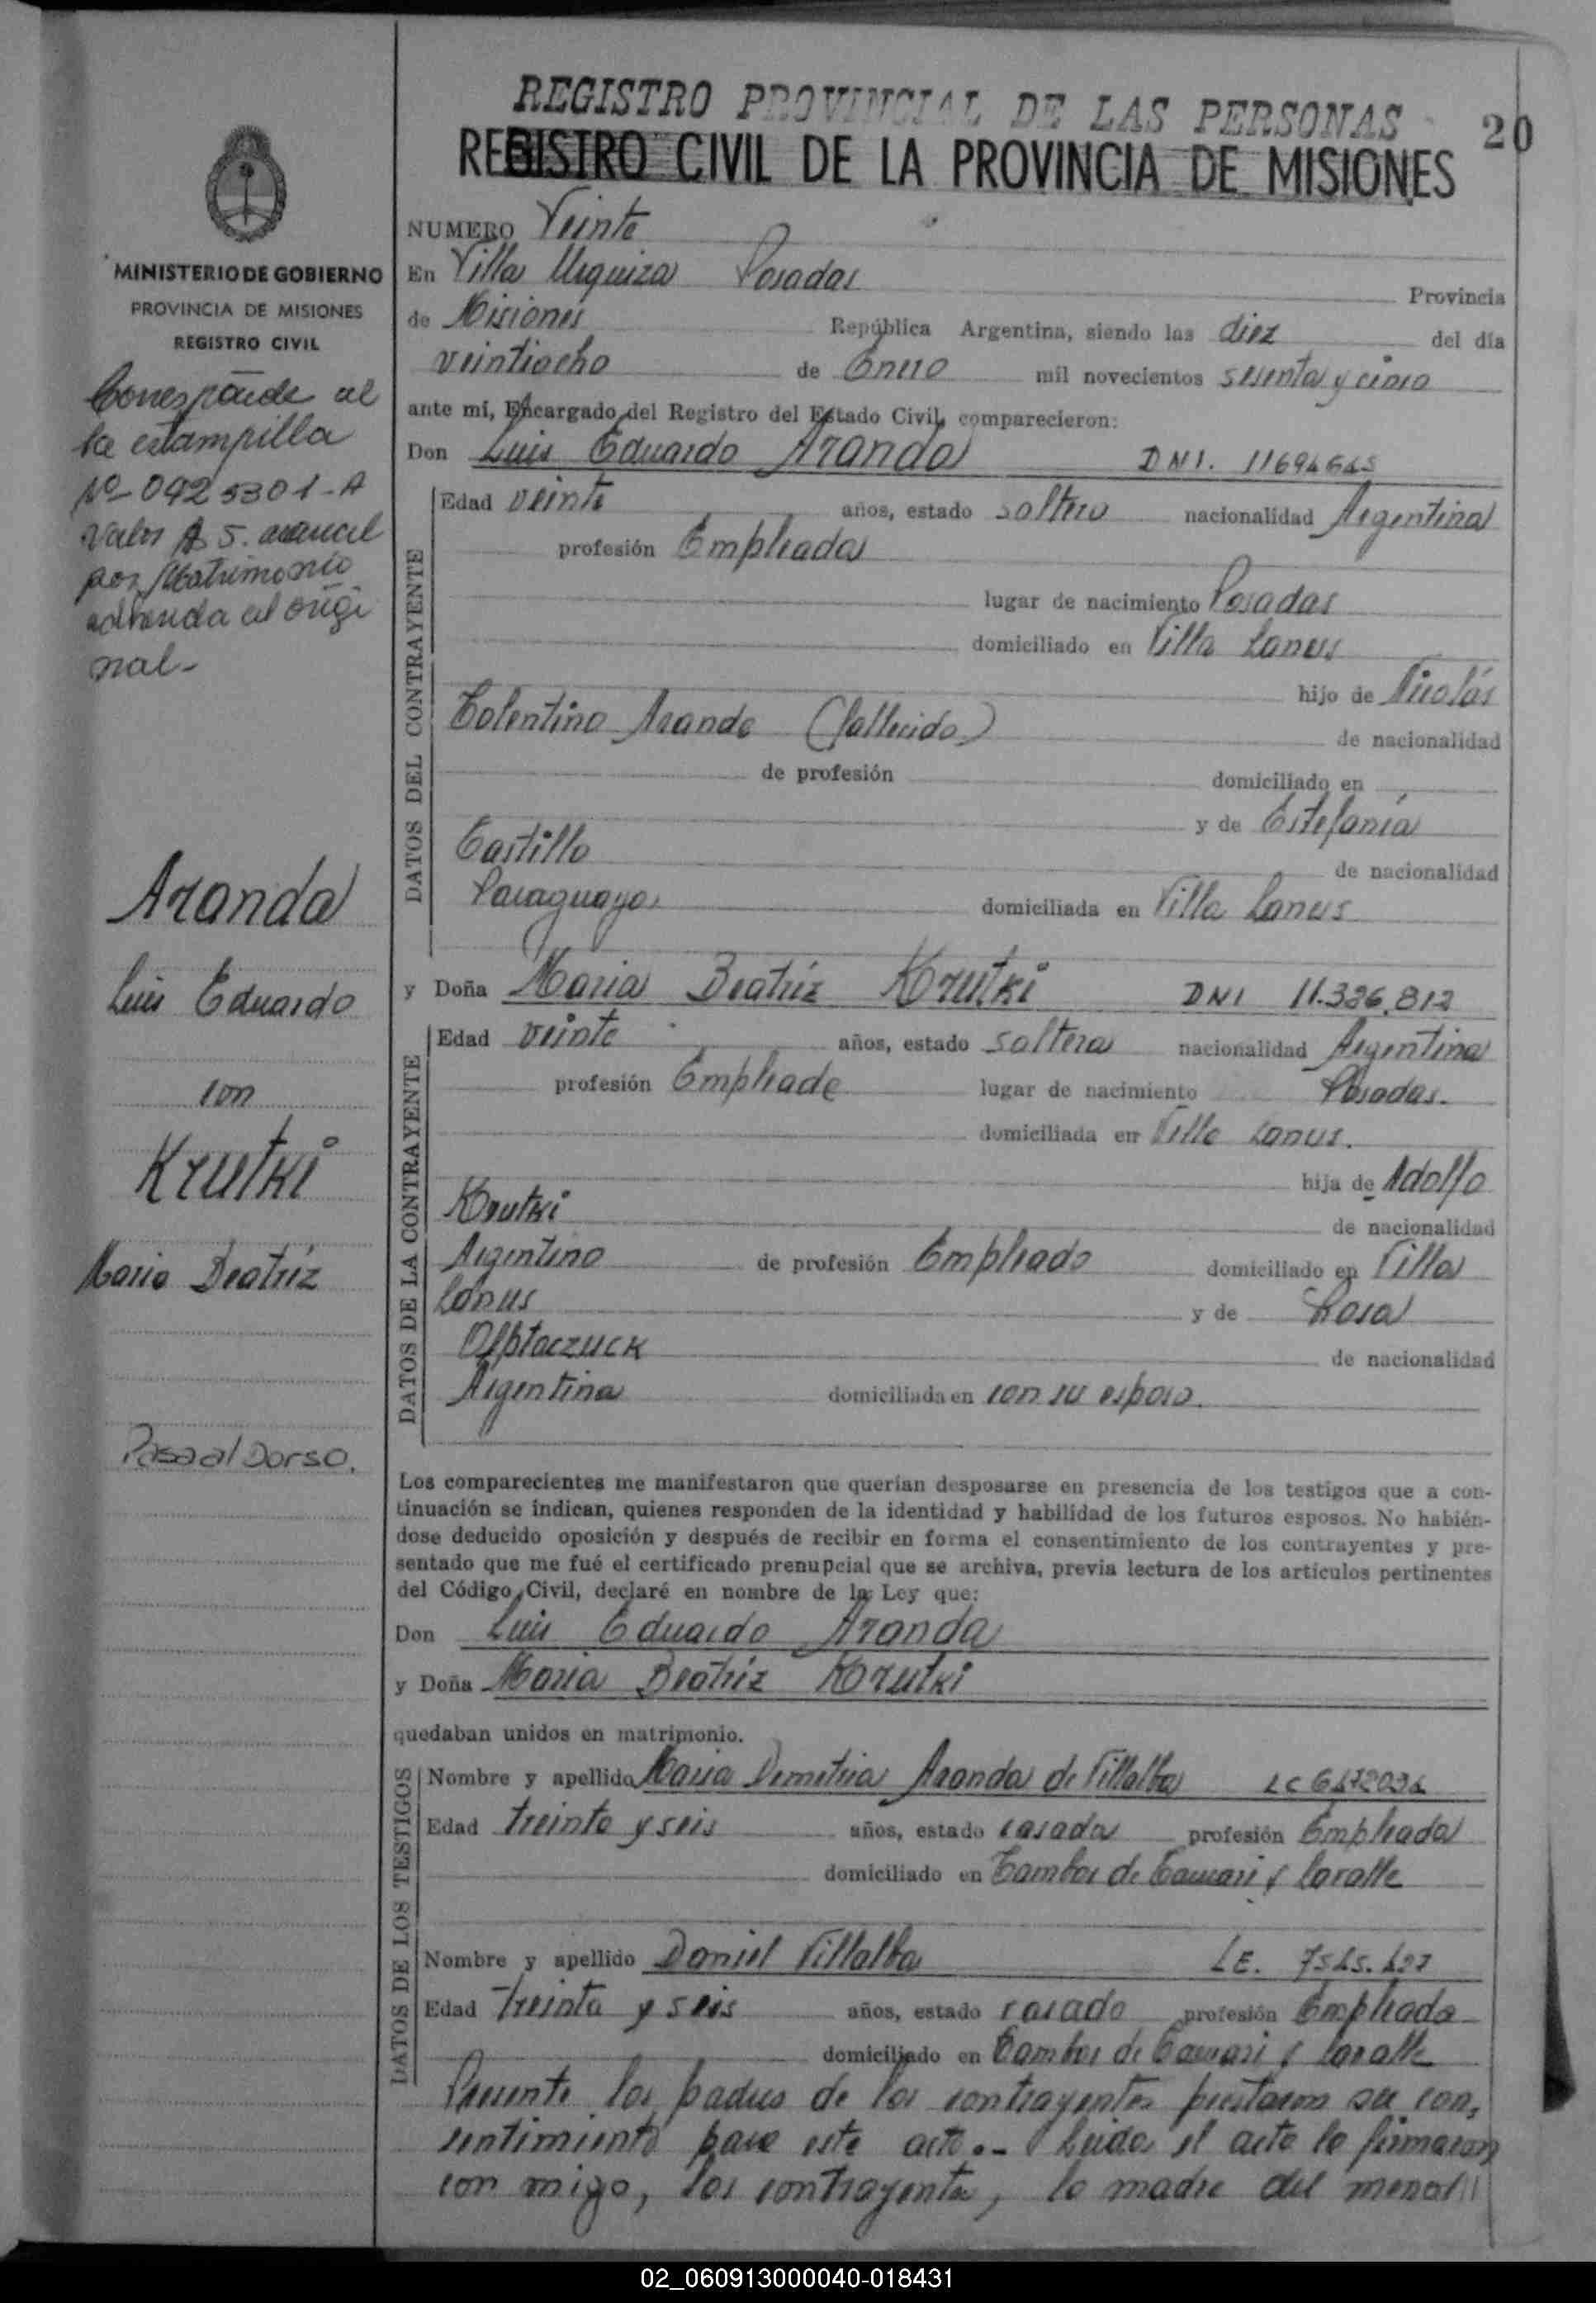 REGISTRO PROVINCIAL DE LAS PERSONAS
20
REGISTRO CIVIL DE LA PROVINCIA DE MISIONES
MINISTERIO DE GOBIERNO
PROVINCIA DE MISIONES
REGISTRO CIVIL
Corresponde al
la estampilla
Nº 0925301-A
valor $ 5. arancel
por Matrimonio
adherida al origi
nal-
Aranda
Luis Eduardo
con
Krutki
Maria Beatríz
Pasa al Dorso.
NUMERO Veinte
En Villa Urquiza Posadas Provincia
de Misiones República Argentina, siendo las diez del día
veintiocho de Enero mil novecientos setenta y cinco
ante mi, Encargado del Registro del Estado Civil, comparecieron:
Don Luis Eduardo Aranda DNI.
DATOS DEL CONTRAYENTE
Edad veinte años, estado soltero nacionalidad Argentina
profesión Empleado
lugar de nacimiento Posadas
domiciliado en Villa Lanus
hijo de Nicolás
Tolentino Aranda (fallecido) de nacionalidad
de profesión domiciliado en
y de Estefanía
Castillo de nacionalidad
Paraguaya domiciliada en Villa Lanus
y Doña Maria Beatríz Krutki DNI 11.326.812
DATOS DE LA CONTRAYENTE
Edad veinte años, estado soltera nacionalidad Argentina
profesión Empleada lugar de nacimiento Posadas.
domiciliada en Villa Lanus.
hija de Adolfo
Krutki de nacionalidad
Argentino de profesión Empleado domiciliado en Villa
Lanus y de Rosa
de nacionalidad
Argentina domiciliada en con su esposo.
Los comparecientes me manifestaron que querían desposarse en presencia de los testigos que a con-
tinuación se indican, quienes responden de la identidad y habilidad de los futuros esposos. No habién-
dose deducido oposición y después de recibir en forma el consentimiento de los contrayentes y pre-
sentado que me fué el certificado prenupcial que se archiva, previa lectura de los artículos pertinentes
del Código Civil, declaré en nombre de la Ley que:
Don Luis Eduardo Aranda
y Doña Maria Beatríz Krutki
quedaban unidos en matrimonio.
DATOS DE LOS TESTIGOS
Nombre y apellido Maria Demetria Aranda de Villalba LC
Edad treinta y seis años, estado casada profesión Empleada
domiciliado en Tambor de Tacuari y Lavalle
Nombre y apellido Daniel Villalba LE.
Edad treinta y seis años, estado casado profesión Empleado
domiciliado en Tambor de Tacuari y Lavalle
Presente los padres de los contrayentes prestaron su con,
sentimiento para este acto.- Leida el acta la firmaron
con migo, los contrayentes, la madre del menor
02_060913000040-018431